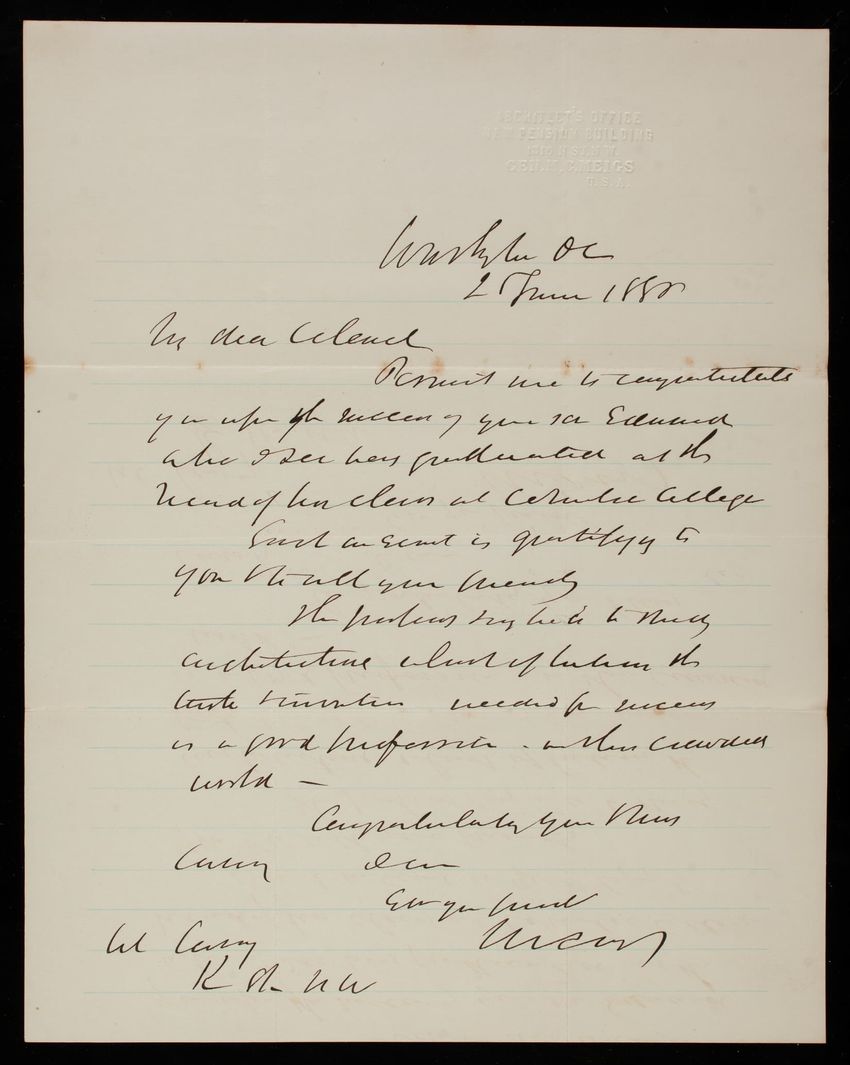 ARCHITECT'S OFFICE
NEW PENSION BUILDING
GEN. M. C. MEIGS
U.S.A.
Washgtn DC
2 June 188
My dear Colonel
Permit me to congratulate
you upon the success of your son Edward
who I see has graduated at the
head of his class at Columbia College
Such an event is gratifying to
you & to all your friends
The papers say he is to study
architecture which if he have the
taste & invention needed for success
is a good profession - in this crowded
world -
Congratulating you thus
Casey I am
Ever your friend
Meigs
Col Casey
K St NW